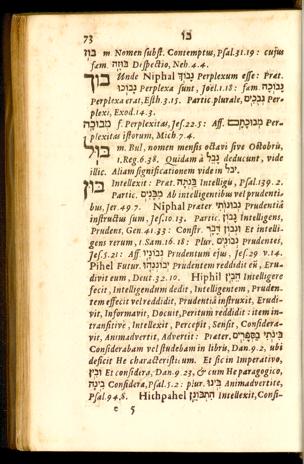 73 בו
בוז m Nomen subst. Contemptus, Psal. 31.19: cujus
fœm. בוּזָה Despectio, Neh. 4.4.
בוך Unde Niphal נָבוֹךְ Perplexum esse: Præt.
נָבוֹכוּ Perplexa sunt, Joel. 1.18: fœm. נָבוֹכָה
Perplexa erat, Esth. 3.15. Partic. plurale, נְבֻכִים Per-
plexi, Exod. 14.3.
מבוכה f. Perplexitas, Jes. 22.5: Aff. Per-
plexitas istorum, Mich. 7.4.
בול m. Bul, nomen mensis octavi sive Octobris,
1. Reg. 6.38. Quidam à נבל deducunt, vide
illic. Aliam significationem vide in יבל.
בון Intellexit: Præt. בַּנְתָּה Intelligis, Psal. 139.2.
Partic. מִבָּנִים Ab intelligentibus vel prudenti-
bus, Jer. 49.7. Niphal Præter נְבוּנוֹתִי Prudentiâ
instructus sum, Jes. 10.13. Partic. נָבוֹן Intelligens,
Prudens, Gen. 41.33: Constr. וּנְבוֹן דָּבָר Et intelli-
gens verum, 1 Sam. 16.18: Plur. נְבוֹנִים Prudentes,
Jes. 5.21: Aff. נְבוֹנָיו Prudentum ejus, Jes. 29 v. 14.
Pihel Futur. יְבוֹנְנֵהוּ Prudentem reddidit eũ, Eru-
divit eum, Deut. 32.10. Hiphil הֵבִין Intelligere
fecit, Intelligendum dedit, Intelligentem, Pruden-
tem effecit vel reddidit, Prudentiâ instruxit, Erudi-
vit, Informavit, Docuit, Peritum reddidit: item in-
transitivè, Intellexit, Percepit, Sensit, Considera-
vit, Animadvertit, Advertit: Præter. בִּינֹתִי בַּסְּפָרִים
Considerabam vel studebam in libris, Dan. 9.2, ubi
deficit He characteristicum. Et sic in Imperativo,
בִּין Et considera, Dan. 9.23, & cum He paragogico,
בִּינָה Considera, Psal. 5.2: plur. בִּינוּ Animadvertite,
Psal. 94.8. Hithpahel הִתְבּוֹנֵן Intellexit, Consi-
e 5